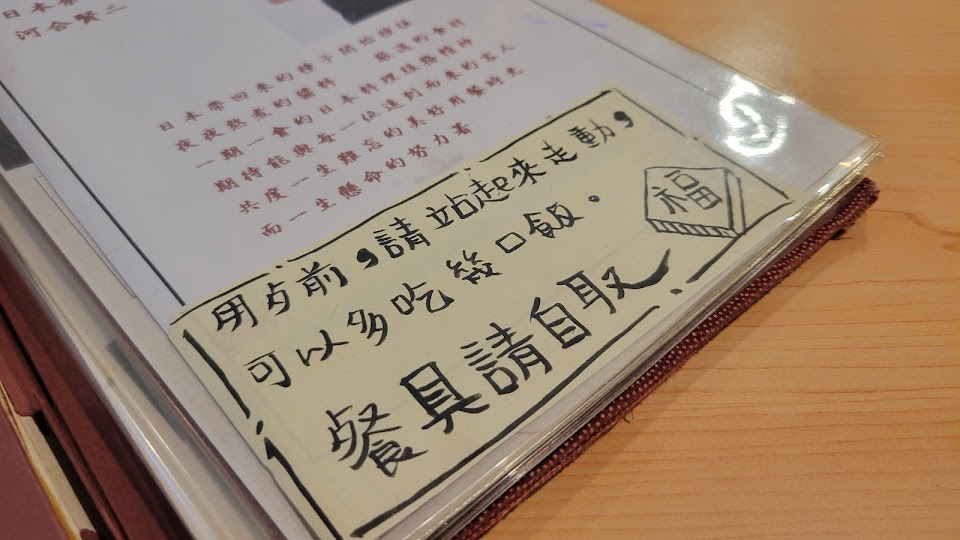 日本
河合賢二
日本帶回來的種子開始種植
夜夜熬煮的醬料 嚴選的食材
一期一會的日本料理服務精神
期待能與每一位遠到而來的客人
共度一生難忘的美好用餐時光
而一生懸命的努力著
用歺前，請站起來走動，
可以多吃幾口飯。
餐具請自取
福